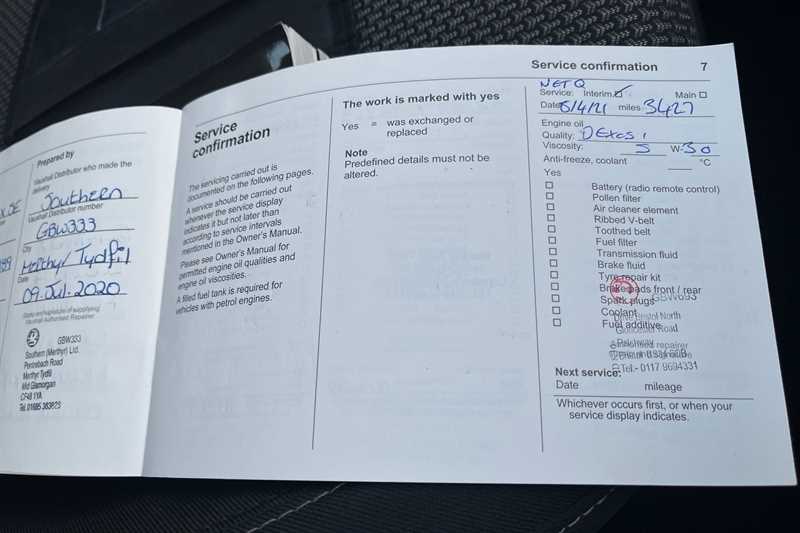 Prepared by
Vauxhall Distributor who made the
delivery
Southern
Vauxhall Distributor number
GBW333
City
Merthyr Tydfil
Date
09. Jul. 2020
Vauxhall Authorised Repairer
GBW333
Southern (Merthyr) Ltd.
Pentrebach Road
Merthyr Tydfil
Mid Glamorgan
CF48 1YA
Service
confirmation
The servicing carried out is
documented on the following pages.
A service should be carried out
whenever the service display
indicates it but not later than
according to service intervals
mentioned in the Owner's Manual.
Please see Owner's Manual for
permitted engine oil qualities and
engine oil viscosities.
A filled fuel tank is required for
vehicles with petrol engines.
The work is marked with yes
Yes = was exchanged or
replaced
Note
Predefined details must not be
altered.
Service confirmation 7
Service: Interim ☑ Main ☐
Date 6/4/21 miles 3427
Engine oil
Quality: DExos 1
Viscosity: 5 W- 30
Anti-freeze, coolant °C
Yes
☐ Battery (radio remote control)
☐ Pollen filter
☐ Air cleaner element
☐ Ribbed V-belt
☐ Toothed belt
☐ Fuel filter
☐ Transmission fluid
☐ Brake fluid
☐ Tyre repair kit
☐ Brake pads front / rear
☐ Spark plugs
☐ Coolant
☐ Fuel additive
GBW693
Drive Bristol North
Gloucester Road
Patchway
Tel.- 0117 9694331
Next service:
Date mileage
Whichever occurs first, or when your
service display indicates.